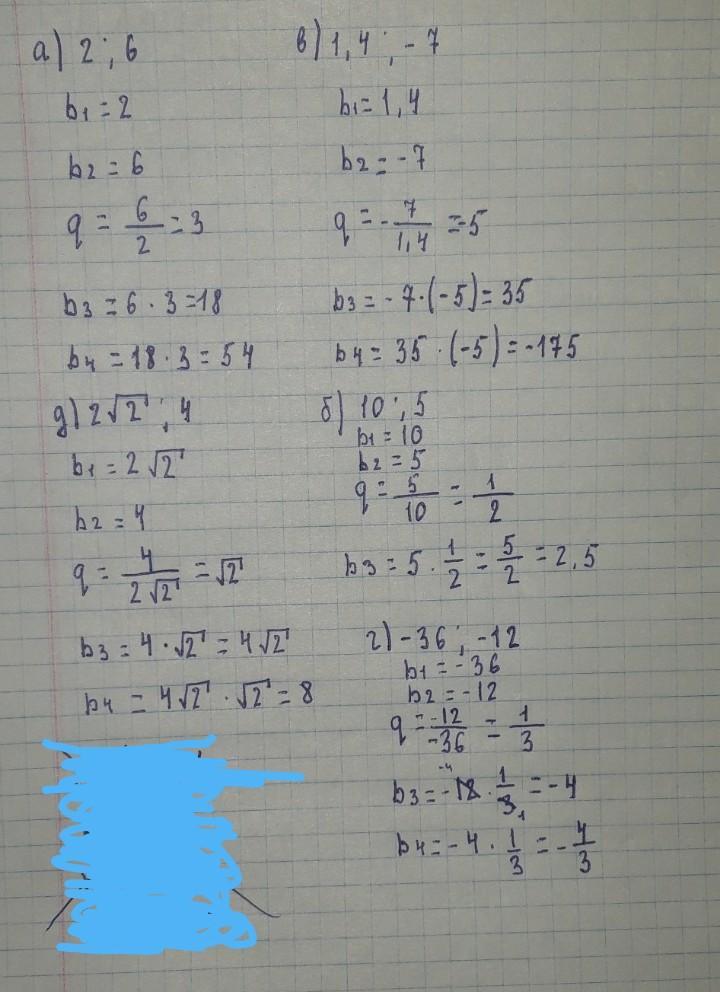 а) 2; 6
b₁ = 2
b₂ = 6
q = 6/2 = 3
b₃ = 6 · 3 = 18
b₄ = 18 · 3 = 54
в) 1,4; -7
b₁ = 1,4
b₂ = -7
q = -7/1,4 = -5
b₃ = -7·(-5) = 35
b₄ = 35 · (-5) = -175
д) 2√2; 4
b₁ = 2√2
b₂ = 4
q = 4/2√2 = √2
b₃ = 4·√2 = 4√2
b₄ = 4√2 · √2 = 8
б) 10; 5
b₁ = 10
b₂ = 5
q = 5/10 = 1/2
b₃ = 5 · 1/2 = 5/2 = 2,5
г) -36; -12
b₁ = -36
b₂ = -12
q = -12/-36 = 1/3
b₃ = -12 · 1/3 = -4
b₄ = -4 · 1/3 = -4/3